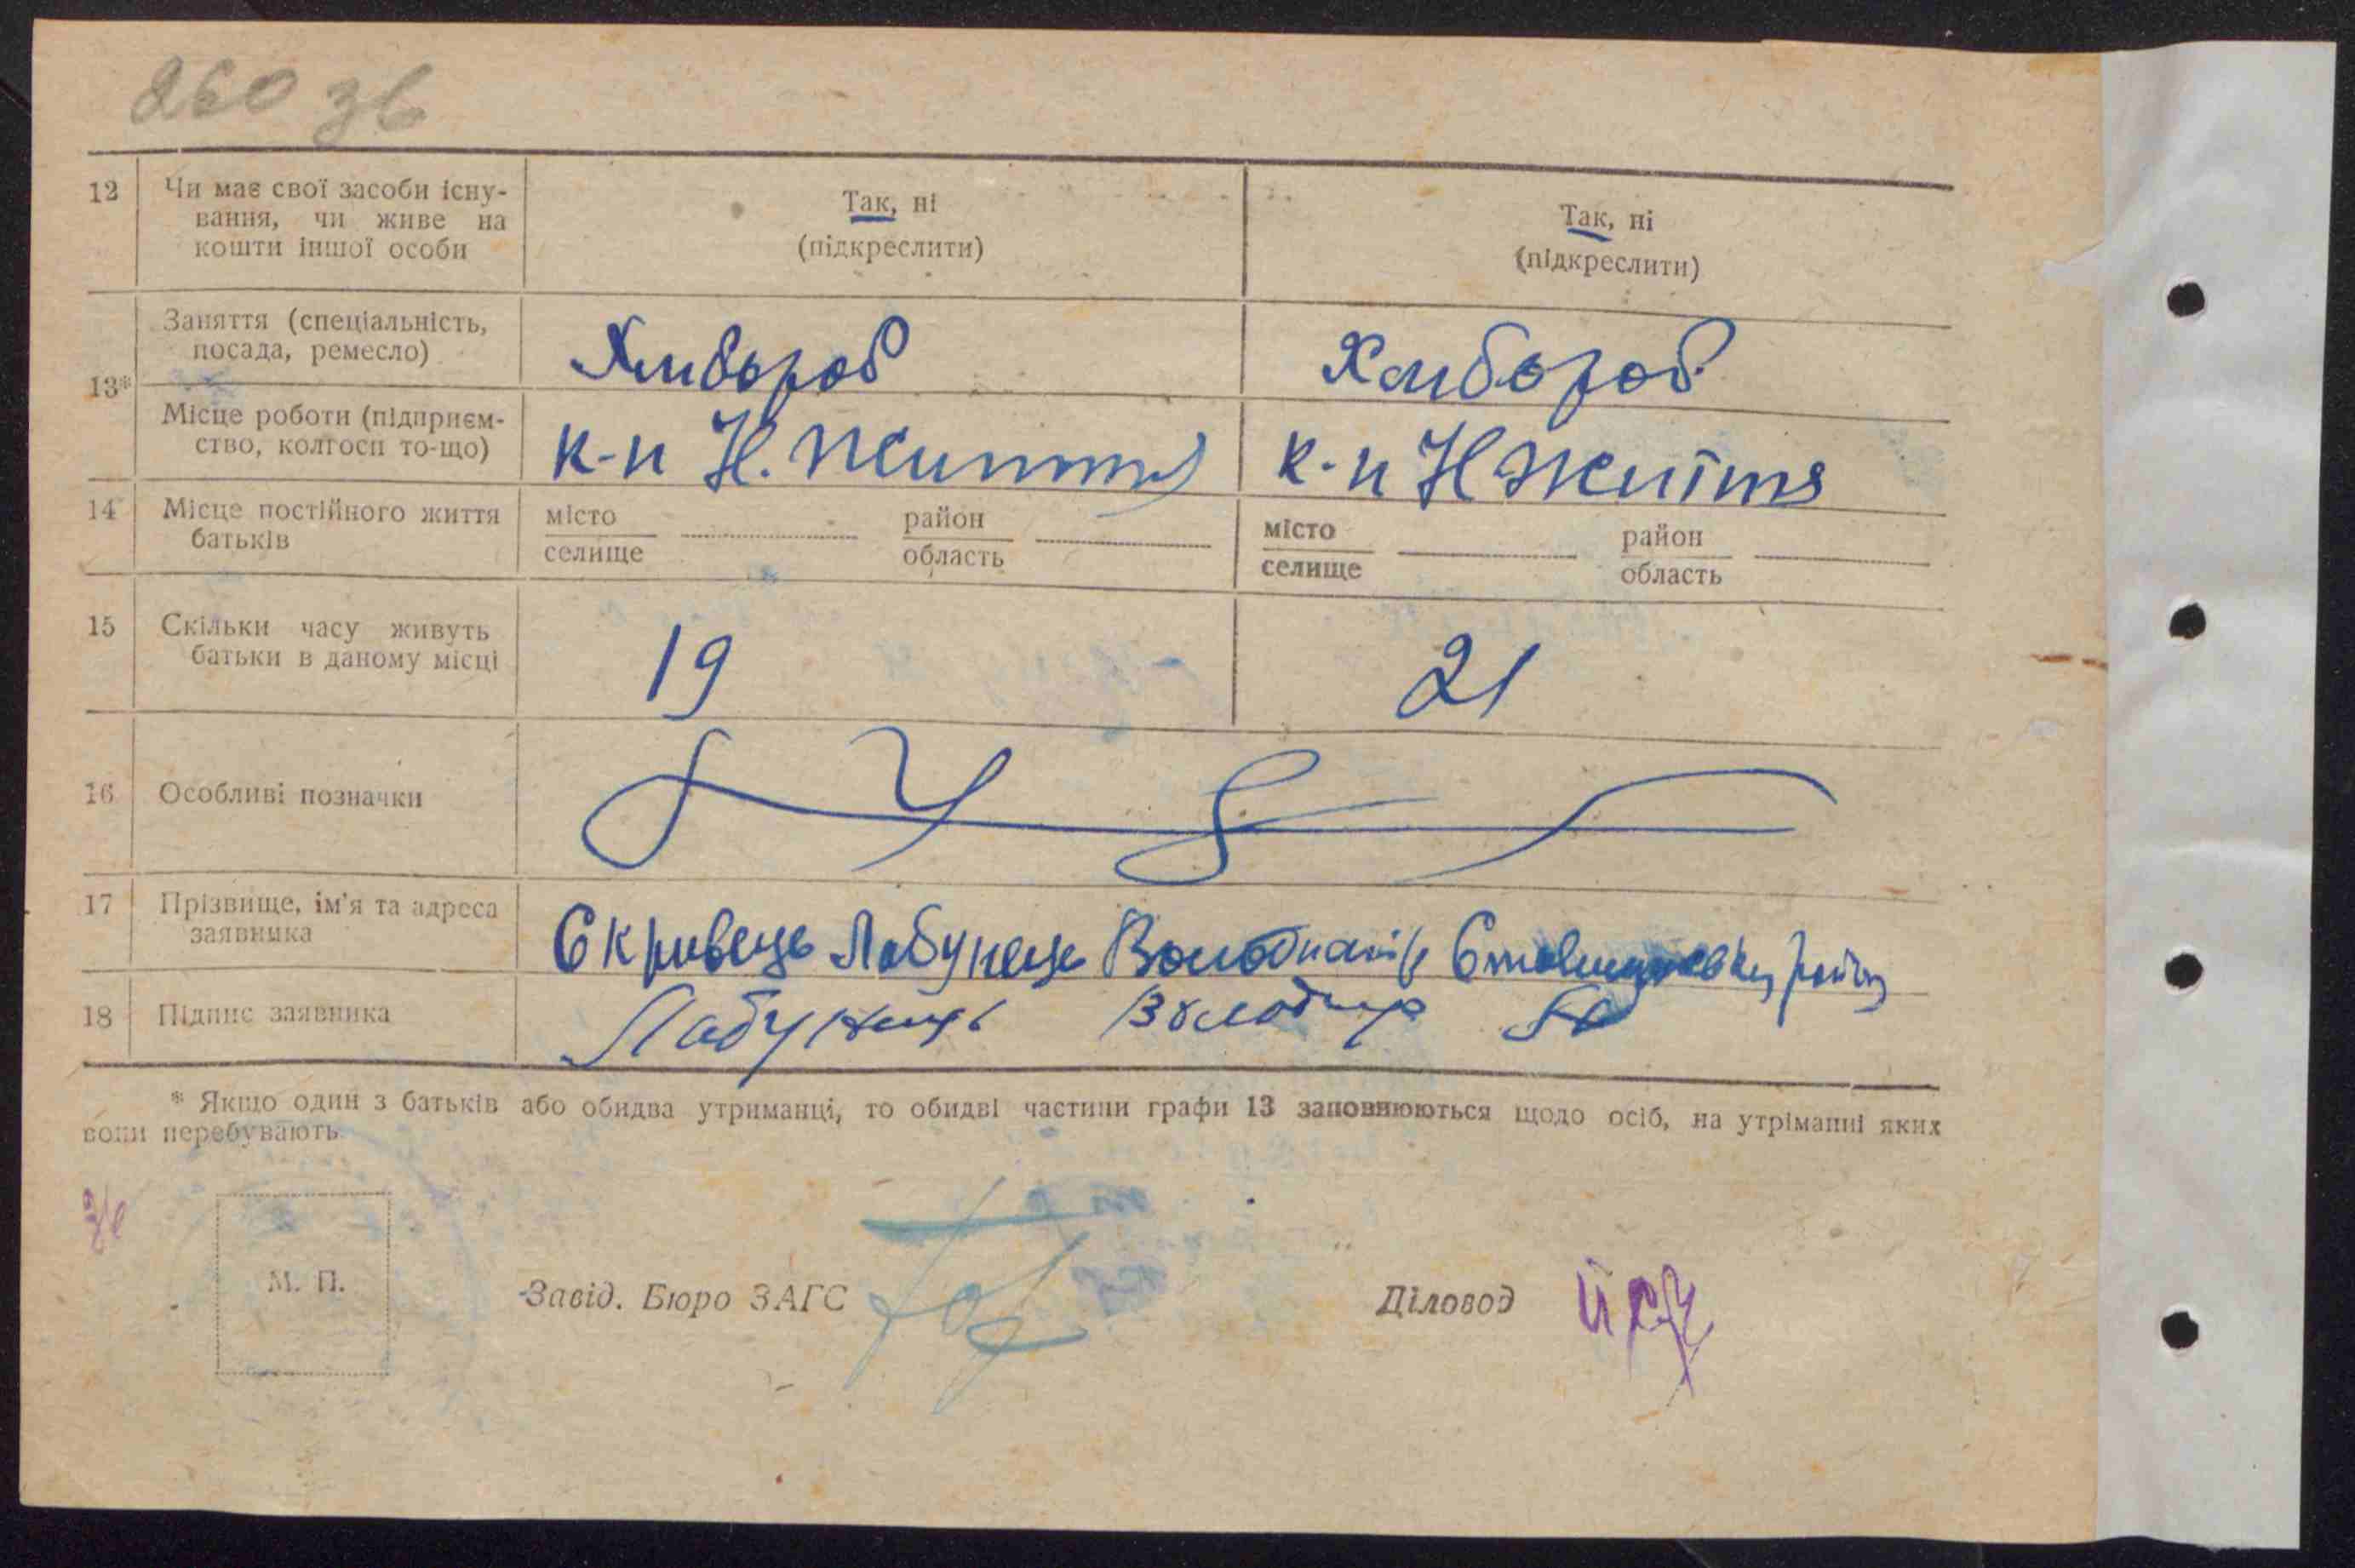 260 зв
12 Чи має свої засоби існу-
вання, чи живе на
кошти іншої особи
Так, ні
(підкреслити)
Так, ні
(підкреслити)
13*
Заняття (спеціальність,
посада, ремесло)
Хлибороб
Хлибороб
Місце роботи (підприєм-
ство, колгосп то-що)
к-п Н. Життя
к-п Н Життя
14 Місце постійного життя
батьків
місто
селище
район
область
місто
селище
район
область
15 Скільки часу живуть
батьки в даному місці
19
21
16 Особливі позначки
17 Прізвище, ім'я та адреса
заявника
Лабунець
18 Підпис заявника
Лабунець
* Якщо один з батьків або обидва утриманці, то обидві частини графи 13 заповнюються щодо осіб, на утріманні яких
вони перебувають
зв
М. П.
Завід. Бюро ЗАГС
Діловод